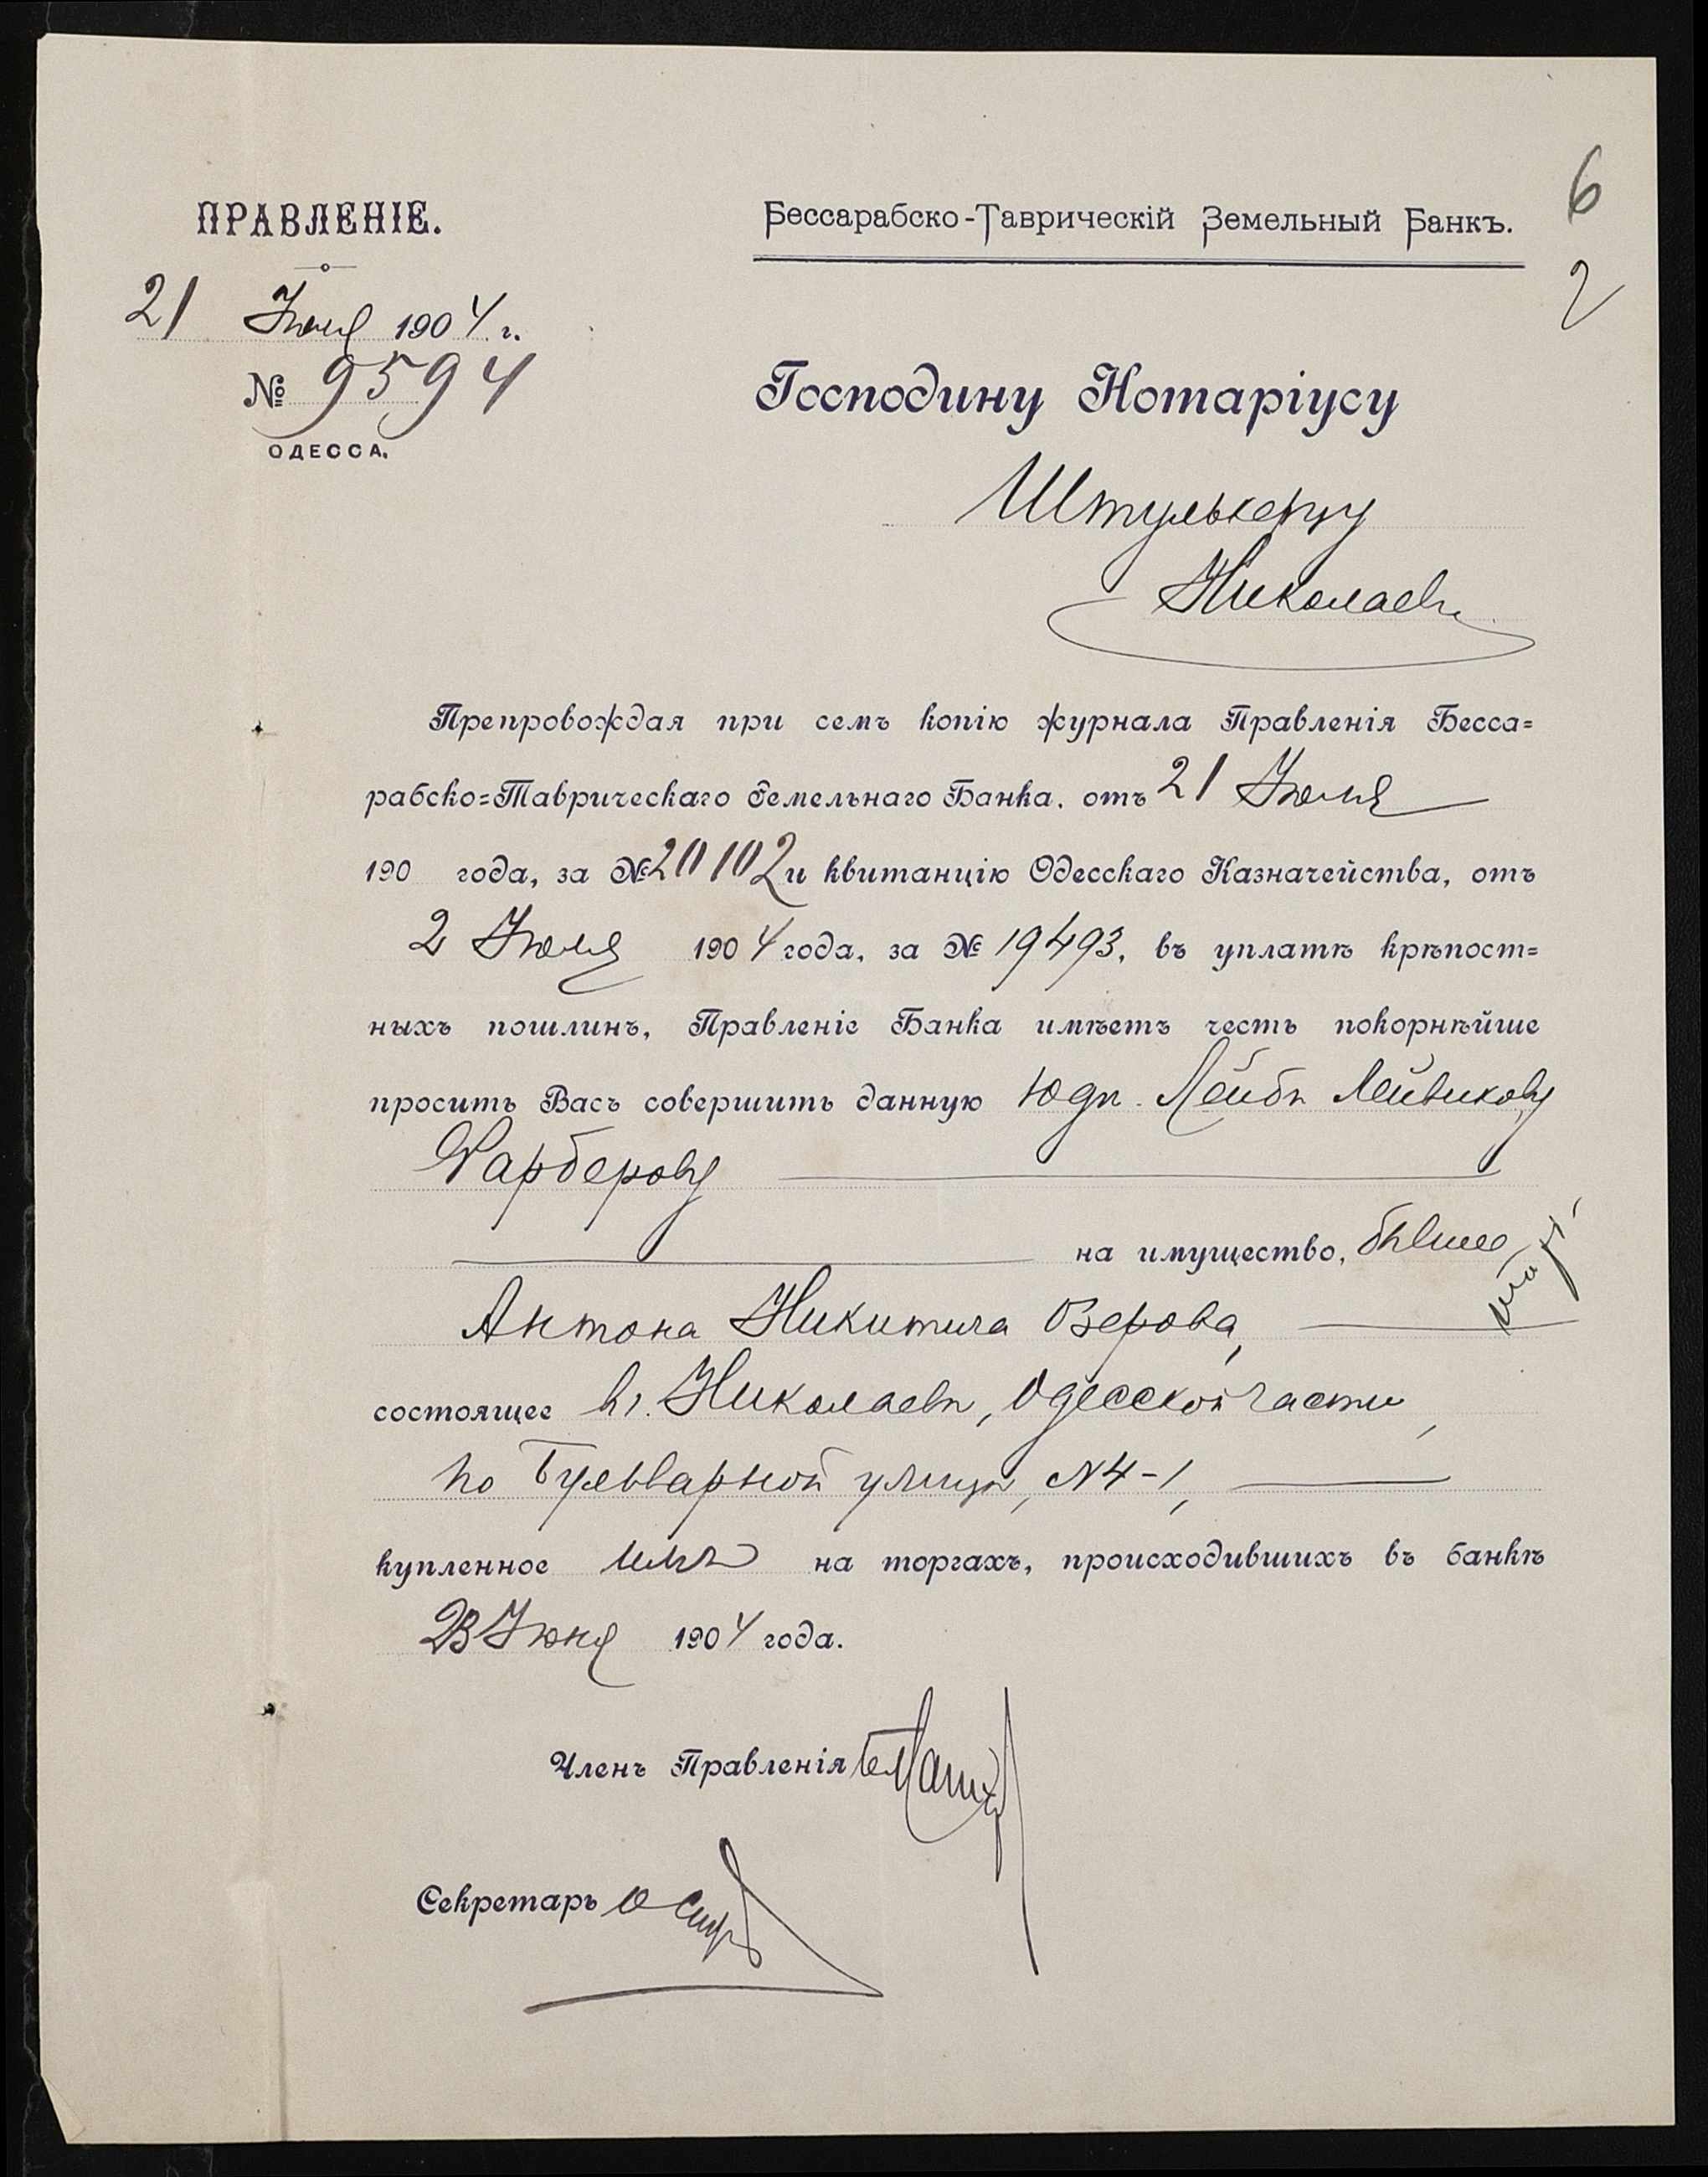 6
2
ПРАВЛЕНІЕ.
Бессарабско-Таврическій Земельный Банкъ.
21 Іюля 1904 г.
№ 9594
ОДЕССА.
Господину Нотаріусу
Штулькерцу
Николаевъ
Препровождая при семъ копію журнала Правленія Бесса=
рабско=Таврическаго Земельнаго Банка, отъ 21 Іюля
190 года, за № 20102 и квитанцію Одесскаго Казначейства, отъ
2 Іюля 1904 года, за № 19493, въ уплатѣ крѣпост=
ныхъ пошлинъ, Правленіе Банка имѣетъ честь покорнѣйше
просить Васъ совершить данную Юдѣ Лейбѣ Лейвикову
Фарберову
на имущество, бывшее
Антона Никитича Озерова,
состоящее въ г. Николаевѣ, Одесской части,
по Бульварной улицѣ, №4-1,
купленное имъ на торгахъ, происходившихъ въ банкѣ
23 Іюня 1904 года.
Членъ Правленія
Секретарь